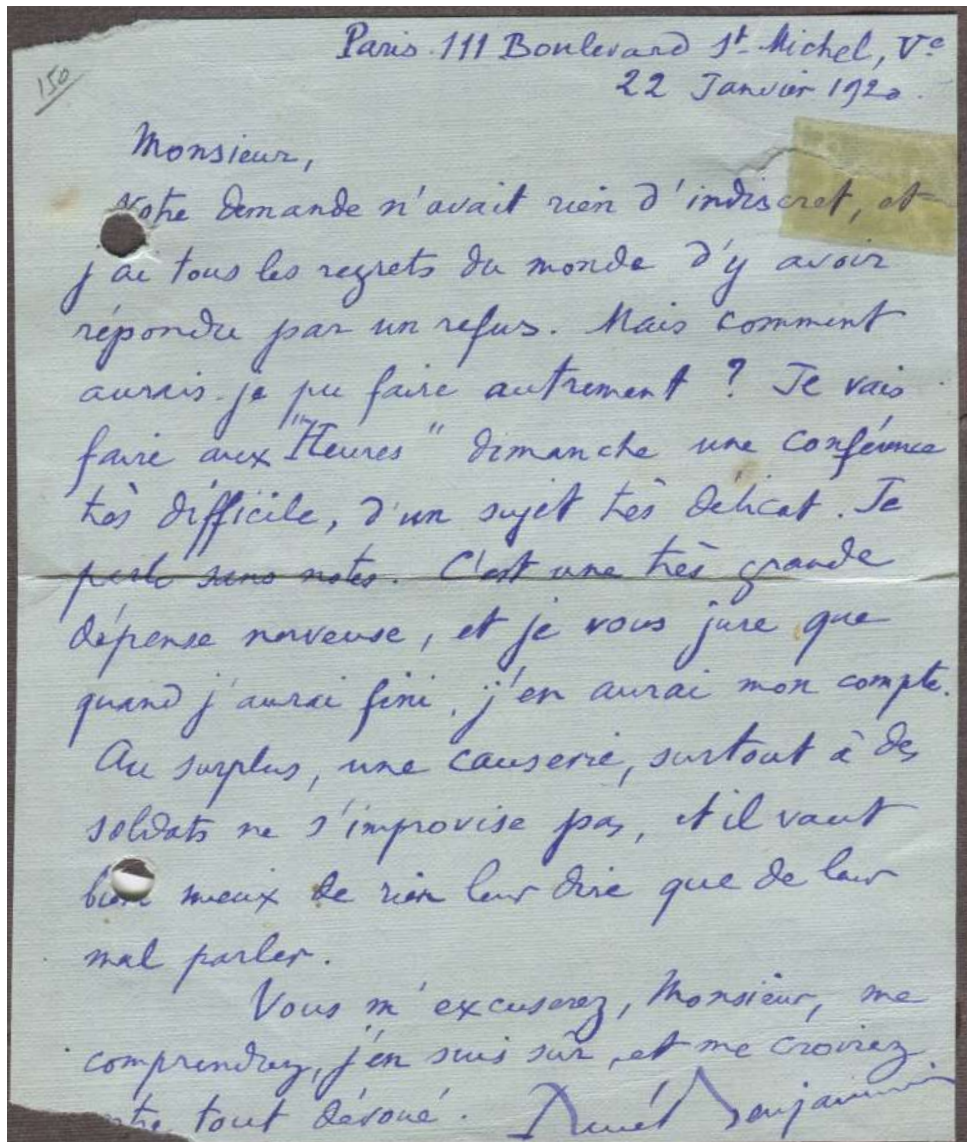 Paris 111 Boulevard St Michel, Ve
22 Janvier 1920.
150
Monsieur,
Votre demande n'avait rien d'indiscret, et
j'ai tous les regrets du monde d'y avoir
répondu par un refus. Mais comment
aurais-je pu faire autrement ? Je vais
faire aux "Heures" dimanche une conférence
très difficile, d'un sujet très délicat. Je
parle sans notes. C'est une très grande
dépense nerveuse, et je vous jure que
quand j'aurai fini, j'en aurai mon compte.
Au surplus, une causerie, surtout à des
soldats ne s'improvise pas, et il vaut
bien mieux de rien leur dire que de leur
mal parler.
Vous m'excuserez, Monsieur, me
comprendrez, j'en suis sûr, et me croirez
votre tout dévoué. René Benjamin